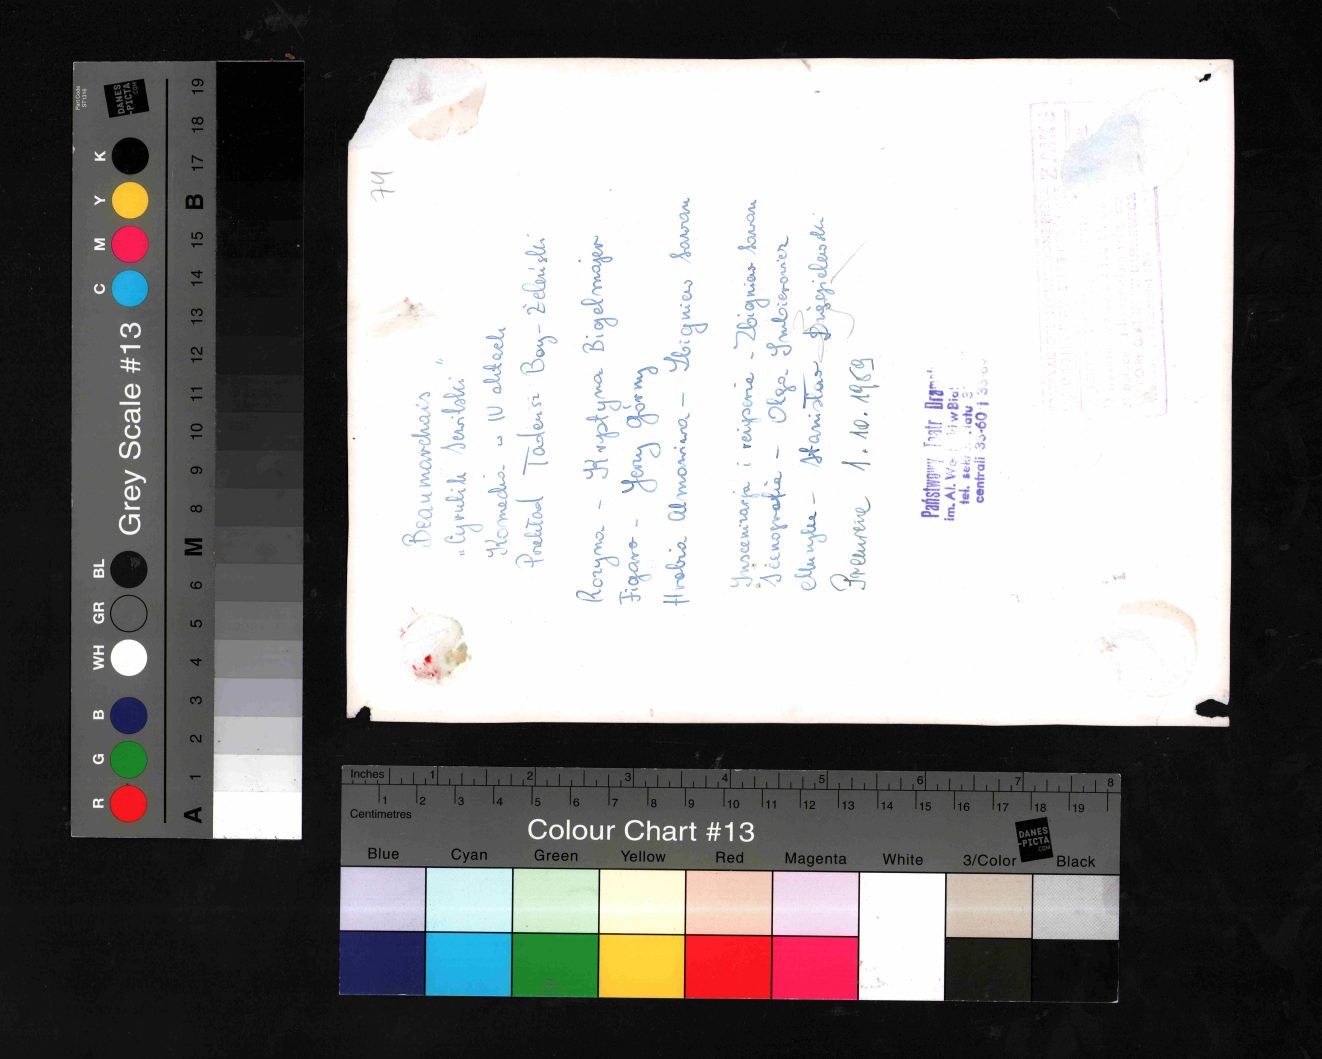 74
Beaumarchais
"Cyrulik Sewilski"
Komedia w IV aktach
Przekład Tadeusz Boy-Żeleński
Rozyna - Krystyna Bigelmajer
Figaro - Jerzy Górny
Hrabia Almaviva - Zbigniew Sawan
Inscenizacja i reżyseria - Zbigniew Sawan
Scenografia - Olga
Muzyka - Stanisław
1.10.1959
Państwowy Teatr
im. Al.
tel.
centrali 33-60 i
Grey Scale #13
DANES
-PICTA
.COM
R G B WH GR BL C M Y K
A 1 2 3 4 5 6 M 8 9 10 11 12 13 14 15 B 17 18 19
Inches 1 2 3 4 5 6 7 8
1 2 3 4 5 6 7 8 9 10 11 12 13 14 15 16 17 18 19
Centimetres
Colour Chart #13
DANES
-PICTA
.COM
Blue Cyan Green Yellow Red Magenta White 3/Color Black